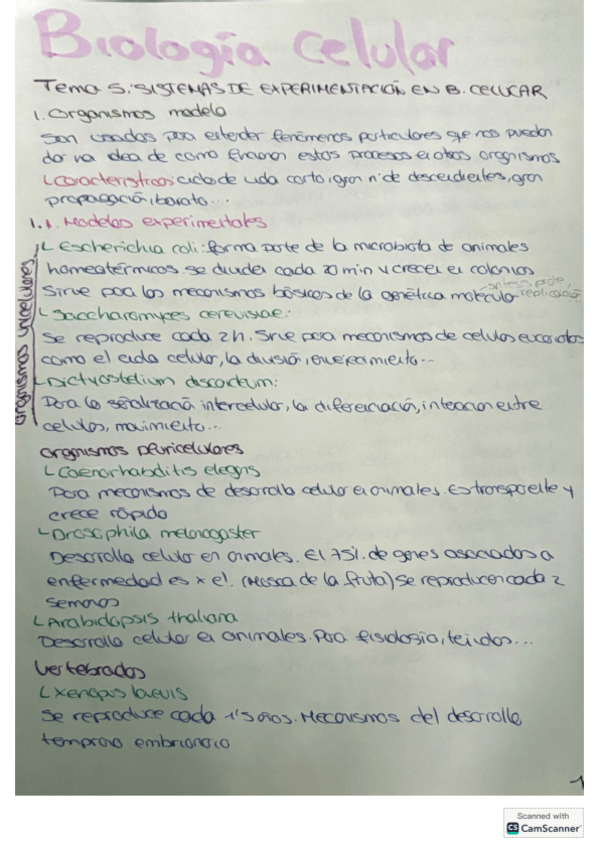 Biología celular
Tema 5: SISTEMAS DE EXPERIMENTACIÓN EN B. CELULAR
1. Organismos modelo
Son usados para entender fenómenos particulares y que nos puedan
dar una idea de como funcionan estos procesos en otros organismos
↳ Características: ciclo de vida corto, gran nº de descendientes, gran
propagación, barato...
1.1. Modelos experimentales
organismos unicelulares
↳ Escherichia coli: forma parte de la microbiota de animales
homeotérmicos se dividen cada 20 min y crecen en colonias
Sirve para los mecanismos básicos de la genética molecular
replicación
↳ Saccharomyces cerevisiae:
Se reproduce cada 2h. Sirve para mecanismos de celulas eucariotas
como el ciclo celular, la división, envejecimiento...
↳ Dictyostelium discoideum:
Para la señalización intercelular, la diferenciación, interacion entre
celulas, movimiento...
organismos pluricelulares
↳ Caenorhabditis elegans
Para mecanismos de desarrollo celular en animales. Es transparente y
crece rápido
↳ Drosophila melanogaster
Desarrollo celular en animales. El 75% de genes asociados a
enfermedad es x el. (Mosca de la fruta) Se reproducen cada 2
semanas
↳ Arabidopsis thaliana
Desarrollo celular en animales. Para fisiología, tejidos...
Vertebrados
↳ Xenopus laevis
Se reproduce cada 1'5 años. Mecanismos del desarrollo
temprano embrionario
1
Scanned with
CS CamScanner